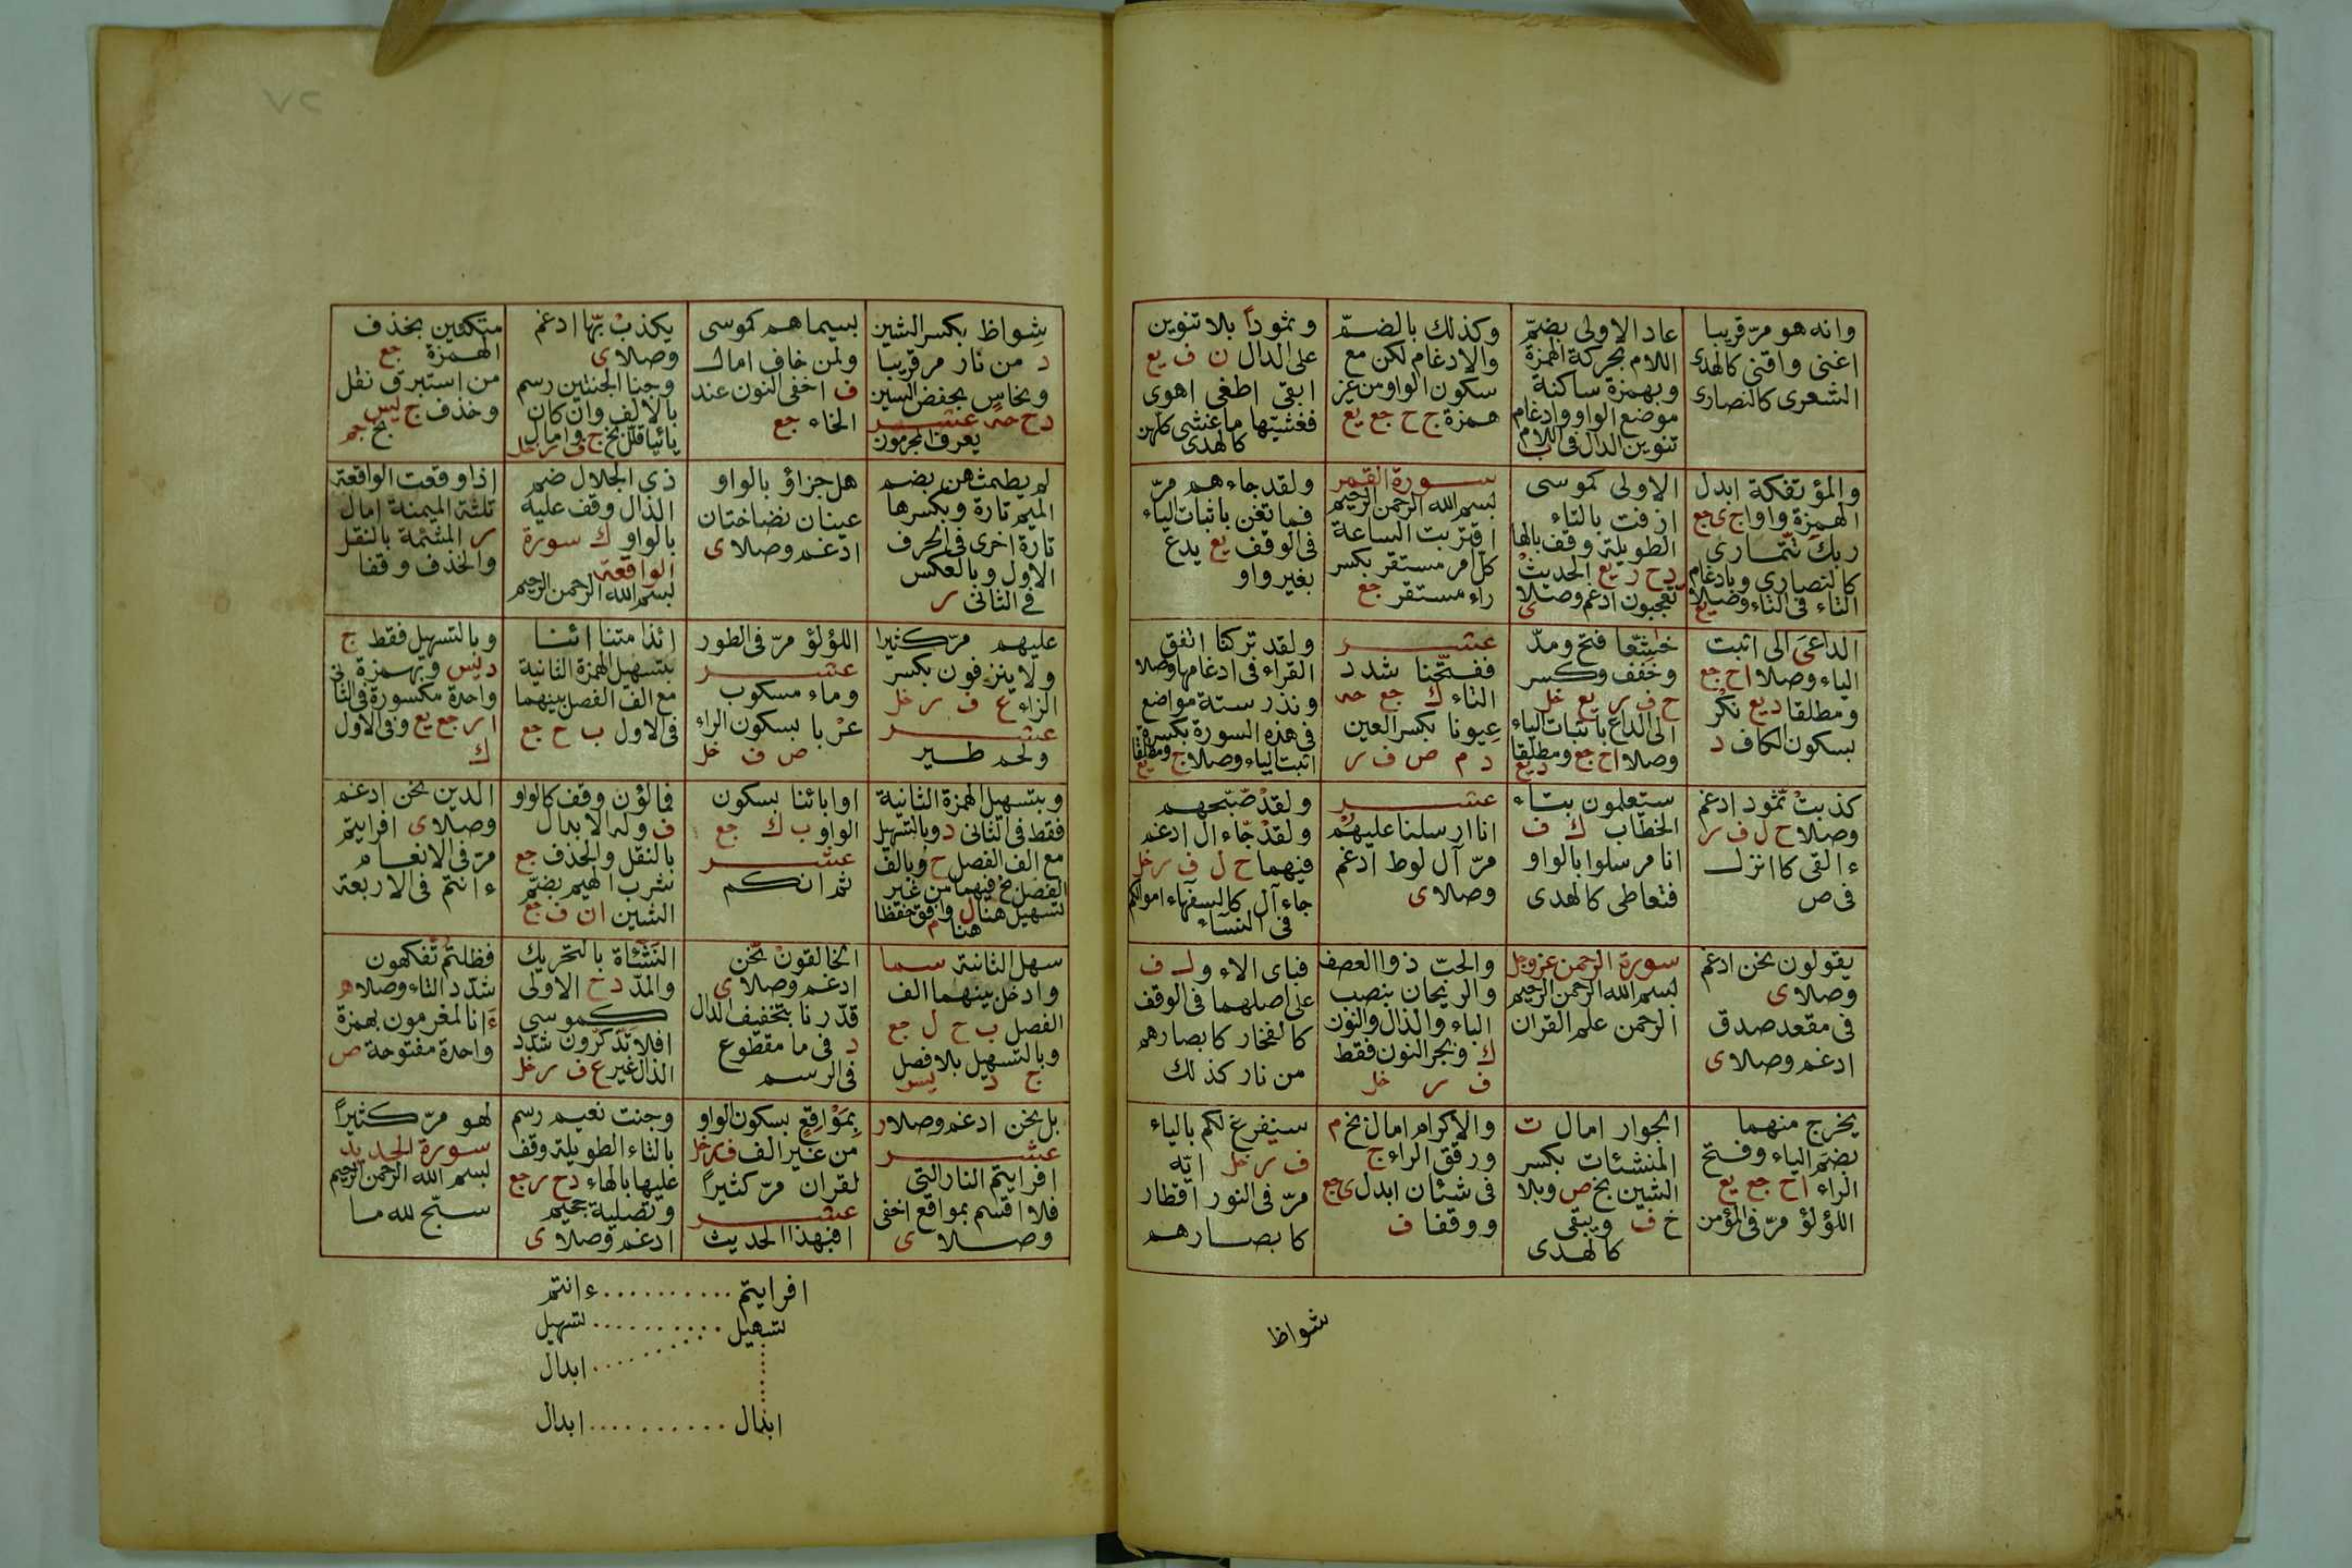 وانه هو مرّ قريبا
اغنى واقنى كالهدى
الشعرى كالنصارى
عاد الاولى بضمّ
اللام بحركة الهمزة
وبهمزة ساكنة
موضع الواو وادغام
تنوين الدال فى اللام ب
وكذلك بالضمّ
والادغام لكن مع
سكون الواو من غير
همزة ج ح جع يع
وثموداً بلا تنوين
على الدال ن ف يع
ابقى اطغى اهوى
فغشيّها ما غشى كلهن
كالهدى
والمؤتفكة ابدل
الهمزة واوا ج ى جع
ربك تتّمارى
كالنصارى وبادغام
التاء فى التاء وصلا يع
الاولى كموسى
ازفت بالتاء
الطويلة وقف بالها
د ح ر يع الحديث
تعجبون ادغم وصلا ى
سورة القمر
بسم الله الرحمن الرحيم
اقتربت الساعة
كل امر مستقر بكسر
راء مستقر جع
ولقد جاءهم مرّ
فما تغن باثبات الياء
فى الوقف يع يدع
بغير واو
الداعى الى اثبت
الياء وصلا ا ح جع
ومطلقا د يع نكر
بسكون الكاف د
خاشعا فتح ومدّ
وخفف وكسر
ح ف ر يع خل
الى الداع باثبات الياء
وصلا ا ح جع ومطلقا
د يع
عشر
ففتّحنا شدد
التاء ك جع حه
عيونا بكسر العين
د م ص ف ر
ولقد تركنا اتفق
القراء فى ادغامها وصلا
ونذر ستة مواضع
فى هذه السورة بكسرة
اثبت الياء وصلا ج ومطلقا يع
كذبت ثمود ادغم
وصلا ح ل ف ر
ءالقى كاانزل
فى ص
ستعلمون بتاء
الخطاب ك ف
انا مرسلوا بالواو
فتعاطى كالهدى
عشر
انا ارسلنا عليهم
مرّ آل لوط ادغم
وصلا ى
ولقد صّبّحهم
ولقد جّاء ال ادغم
فيهما ح ل ف ر خل
جاء آل كالسفهاء اموالكم
فى النساء
يقولون نحن ادغم
وصلا ى
فى مقعد صدق
ادغم وصلا ى
سورة الرحمن عز وجل
بسم الله الرحمن الرحيم
الرحمن علم القران
والحبّ ذوا العصف
والريحان بنصب
الباء والذال والنون
ك وبجر النون فقط
ف ر خل
فباى الاء و لـ ف
على اصلهما فى الوقف
كالفخار كابصارهم
من نار كذلك
يخرج منهما
بضم الياء وفتح
الراء ا ح جع يع
اللؤلؤ مرّ فى المؤمن
الجوار امال ت
المنشئات بكسر
الشين بخ ص وبلا
خ ف ويبقى
كالهدى
والاكرام امال بخ م
ورقق الراء ج
فى شئان ابدل ى جع
ووقفا ف
سيفرغ لكم بالياء
ف ر خل ايّه
مرّ فى النور اقطار
كابصارهم
شواظ
شواظ بكسر الشين
د من نار مر قريبا
ونحاس بخفض السين
د ح حه عشر
يعرف المجرمون
بسيماهم كموسى
ولمن خاف امال
ف اخفى النون عند
الخاء جع
يكذب بّها ادغم
وصلا ى
وجنا الجنتين رسم
بالالف وان كان
يائيا قلل بخ ج وامال
ف ر خل
متكئين بحذف
الهمزة جع
من استبرق نقل
وحذف ج يس
بخ جم
لم يطمثهن بضم
الميم تارة وبكسرها
تارة اخرى فى الحرف
الاول وبالعكس
فى الثانى ر
هل جزاؤ بالواو
عينان نضاختان
ادغم وصلا ى
ذى الجلال ضم
الذال وقف عليه
بالواو ك سورة
الواقعة
بسم الله الرحمن الرحيم
اذا وقعت الواقعة
ثلثة الميمنة امال
ر المشئمة بالنقل
والحذف وقفا
عليهم مرّ كثيرا
ولا ينزفون بكسر
الزاء ع ف ر خل
عشر
ولحم طير
اللؤلؤ مرّ فى الطور
عشر
وماء مسكوب
عربا بسكون الراء
ص ف خل
ائذا متنا ائنا
بتسهيل الهمزة الثانية
مع الف الفصل بينهما
فى الاول ب ح جع
وبالتسهيل فقط ج
د يس وبهمزة
واحدة مكسورة فى الثانى
ا ر جع يع وفى الاول
ك
وبتسهيل الهمزة الثانية
فقط فى الثانى د وبالتسهيل
مع الف الفصل ح وبالف
الفصل بخ فيهما من غير
تسهيل هنا ل وافق حفظا
هنا م
او ابائنا بسكون
الواو ب ك جع
عشر
ثم انكم
فمالؤن وقف كالواو
ف وله الابدال
بالنقل والحذف جع
شرب الهيم بضمّ
الشين ا ن ف جع
الدين نحن ادغم
وصلا ى افرايتم
مرّ فى الانعام
ءانتم فى الاربعة
سهل الثانية سما
وادخل بينهما الف
الفصل ب ح ل جع
وبالتسهيل بلا فصل
ج د يس
الخالقون نّحن
ادغم وصلا ى
قدّرنا بتخفيف الدال
د فى ما مقطوع
فى الرسم
النشأة بالتحريك
والمدّ د ح الاولى
كموسى
افلا تذّكّرون شدد
الذال غير ع ف ر خل
فظلتم تّفكهون
شدد التاء وصلا ه
ءانا لمغرمون بهمزة
واحدة مفتوحة ص
بل نحن ادغم وصلا ر
عشر
افرايتم النار التى
فلا اقسم بمواقع اخفى
وصلا ى
بموْاقع بسكون الواو
من غير الف ف ر خل
لقران مرّ كثيراً
عشر
افبهذا الحديث
وجنت نعيم رسم
بالتاء الطويلة وقف
عليها بالهاء د ح ر جع
وتصلية جحيم
ادغم وصلا ى
لهو مرّ كثيراً
سورة الحديد
بسم الله الرحمن الرحيم
سبّح لله ما
افرايتم .......... ءانتم
تسهيل .......... تسهيل
.......... ابدال
ابدال .......... ابدال